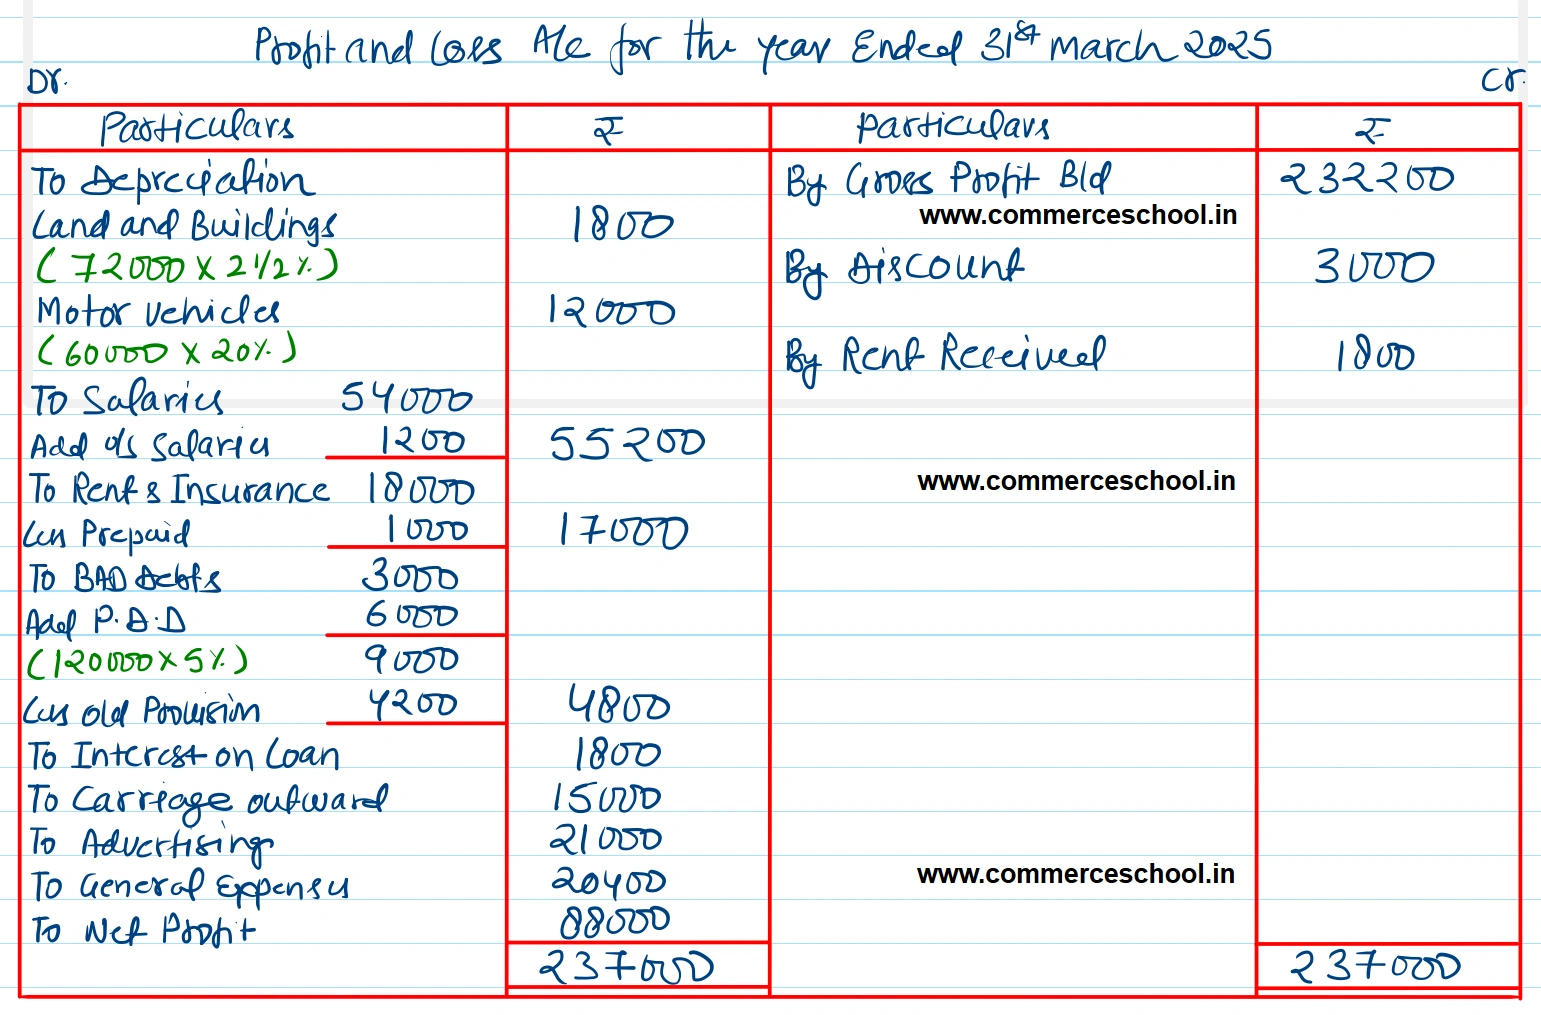 Profit and Loss A/c for the year Ended 31st March 2025
Dr. Cr.
Particulars ₹ Particulars ₹
To Depreciation By Gross Profit B/d 232200
Land and Buildings 1800 www.commerceschool.in
(72000 X 2 1/2 %) By Discount 3000
Motor Vehicles 12000
(60000 X 20%) By Rent Received 1800
To Salaries 54000
Add o/s Salaries 1200 55200
To Rent & Insurance 18000 www.commerceschool.in
Less Prepaid 1000 17000
To BAD Debts 3000
Add P.D.D 6000
(120000 X 5%) 9000
Less Old Provision 4200 4800
To Interest on Loan 1800
To Carriage outward 15000
To Advertising 21000
To General Expenses 20400 www.commerceschool.in
To Net Profit 88000
237000 237000